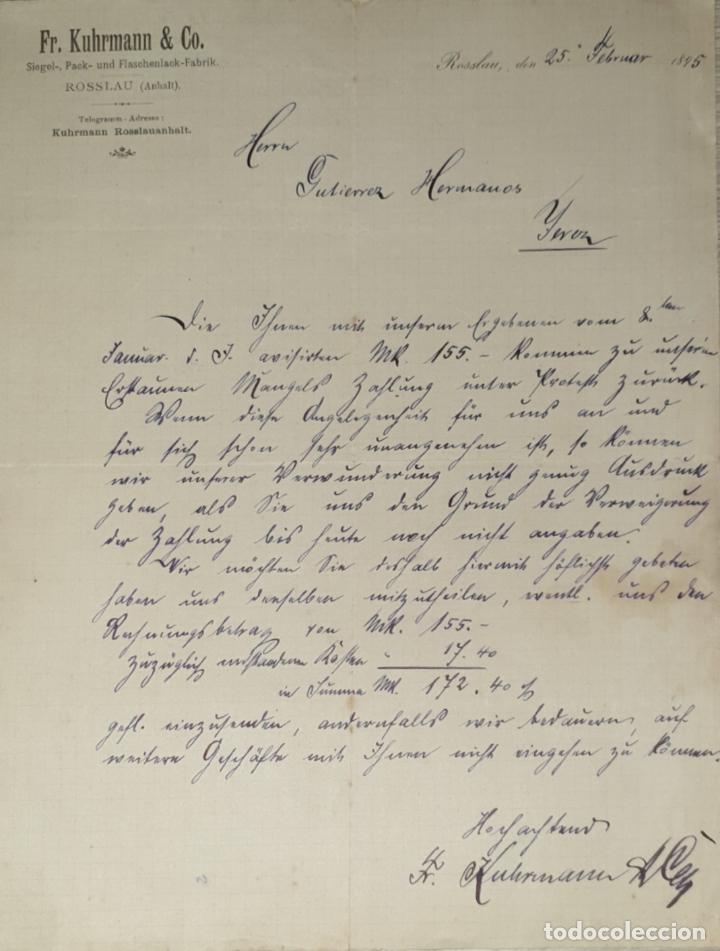 Fr. Kuhrmann & Co.
Siegel-, Pack- und Flaschenlack-Fabrik.
ROSSLAU (Anhalt).
Telegramm-Adresse:
Kuhrmann Rosslauanhalt.
Rosslau, den 25. Februar 1895
Herrn
Gutierrez Hermanos
Jerez
Die Ihnen mit unserm Ergebenen vom 8.ten
Januar d. J. avisirten Mk. 155.- kommen zu unserm
Erstaunen Mangels Zahlung unter Protest zurück.
Wenn diese Angelegenheit für uns an und
für sich schon sehr unangenehm ist, so können
wir unserer Verwunderung nicht genug Ausdruck
geben, als Sie uns den Grund der Verweigerung
der Zahlung bis heute noch nicht angaben.
Wir möchten Sie deshalb hiermit höflichst gebeten
haben uns denselben mitzutheilen, eventl. uns den
Rechnungsbetrag von Mk. 155.-
zuzüglich entstandener Kosten " 17.40
in Summa Mk. 172.40
gefl. einzusenden, andernfalls wir bedauern, auf
weitere Geschäfte mit Ihnen nicht eingehen zu können.
Hochachtend
Fr. Kuhrmann & Co
todocoleccion